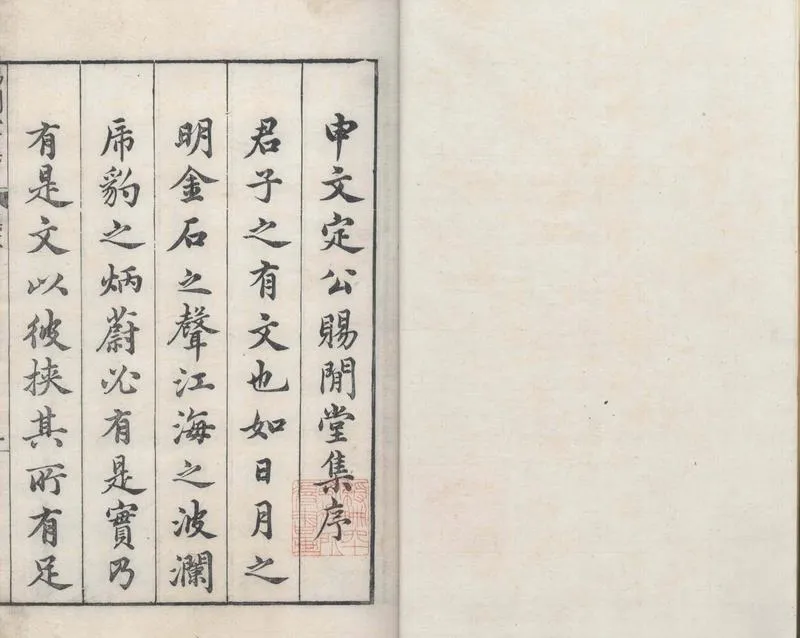 申文定公賜閒堂集序
君子之有文也如日月之
明金石之聲江海之波瀾
虎豹之炳蔚必有是實乃
有是文以彼挾其所有足